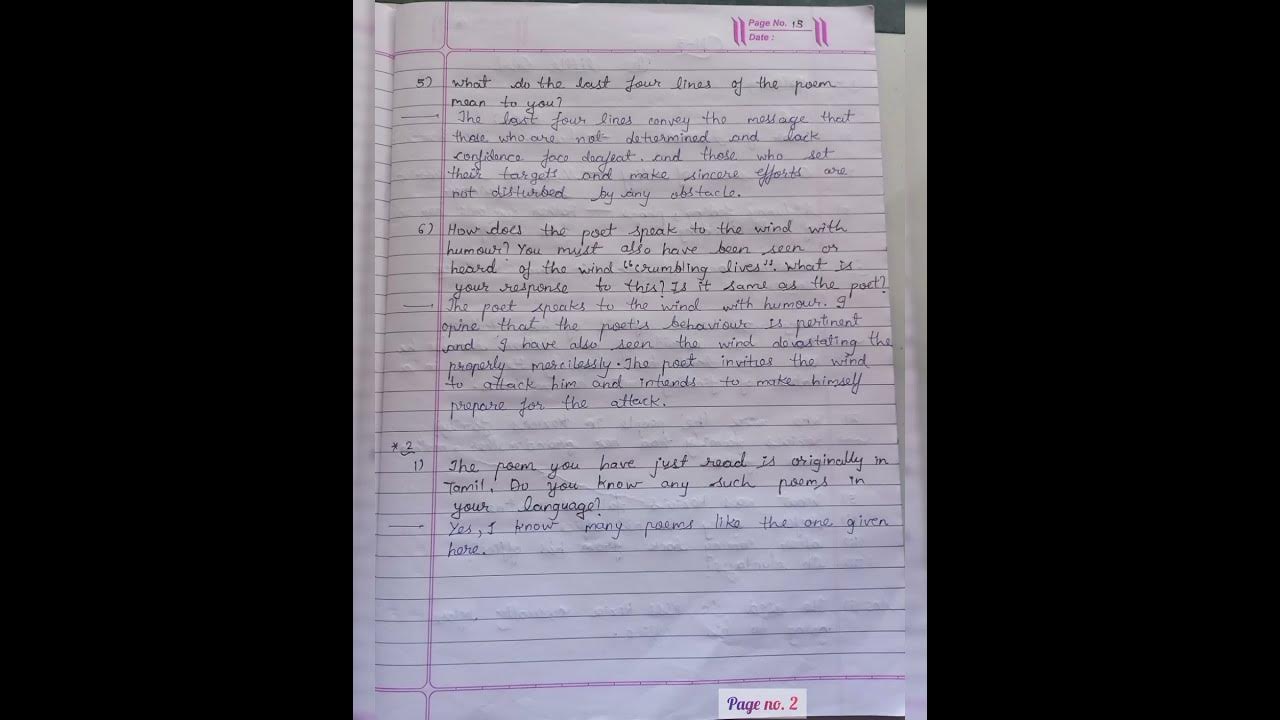 Page No. 13
Date :
5) What do the last four lines of the poem
mean to you?
The last four lines convey the message that
those who are not determined and lack
confidence face deafeat. and those who set
their targets and make sincere efforts are
not disturbed by any obstacle.
6) How does the poet speak to the wind with
humour? You must also have been seen or
heard of the wind "crumbling lives". What is
your response to this? Is it same as the poet?
The poet speaks to the wind with humour. I
opine that the poet's behaviour is pertinent
and I have also seen the wind devastating the
properly mercilessly. The poet invities the wind
to attack him and intends to make himself
prepare for the attack.
* 2
1) The poem you have just read is originally in
Tamil. Do you know any such poems in
your language?
Yes, I know many poems like the one given
here.
Page no. 2